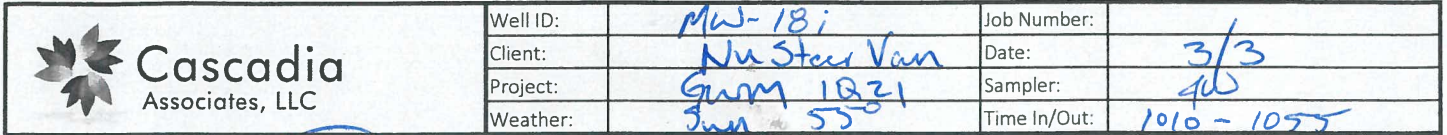 Cascadia
Associates, LLC
Well ID: MW-18i Job Number:
Client: Nu Star Van Date: 3/3
Project: GWM 1Q21 Sampler:
Weather: Sun 55° Time In/Out: 1010 - 1055